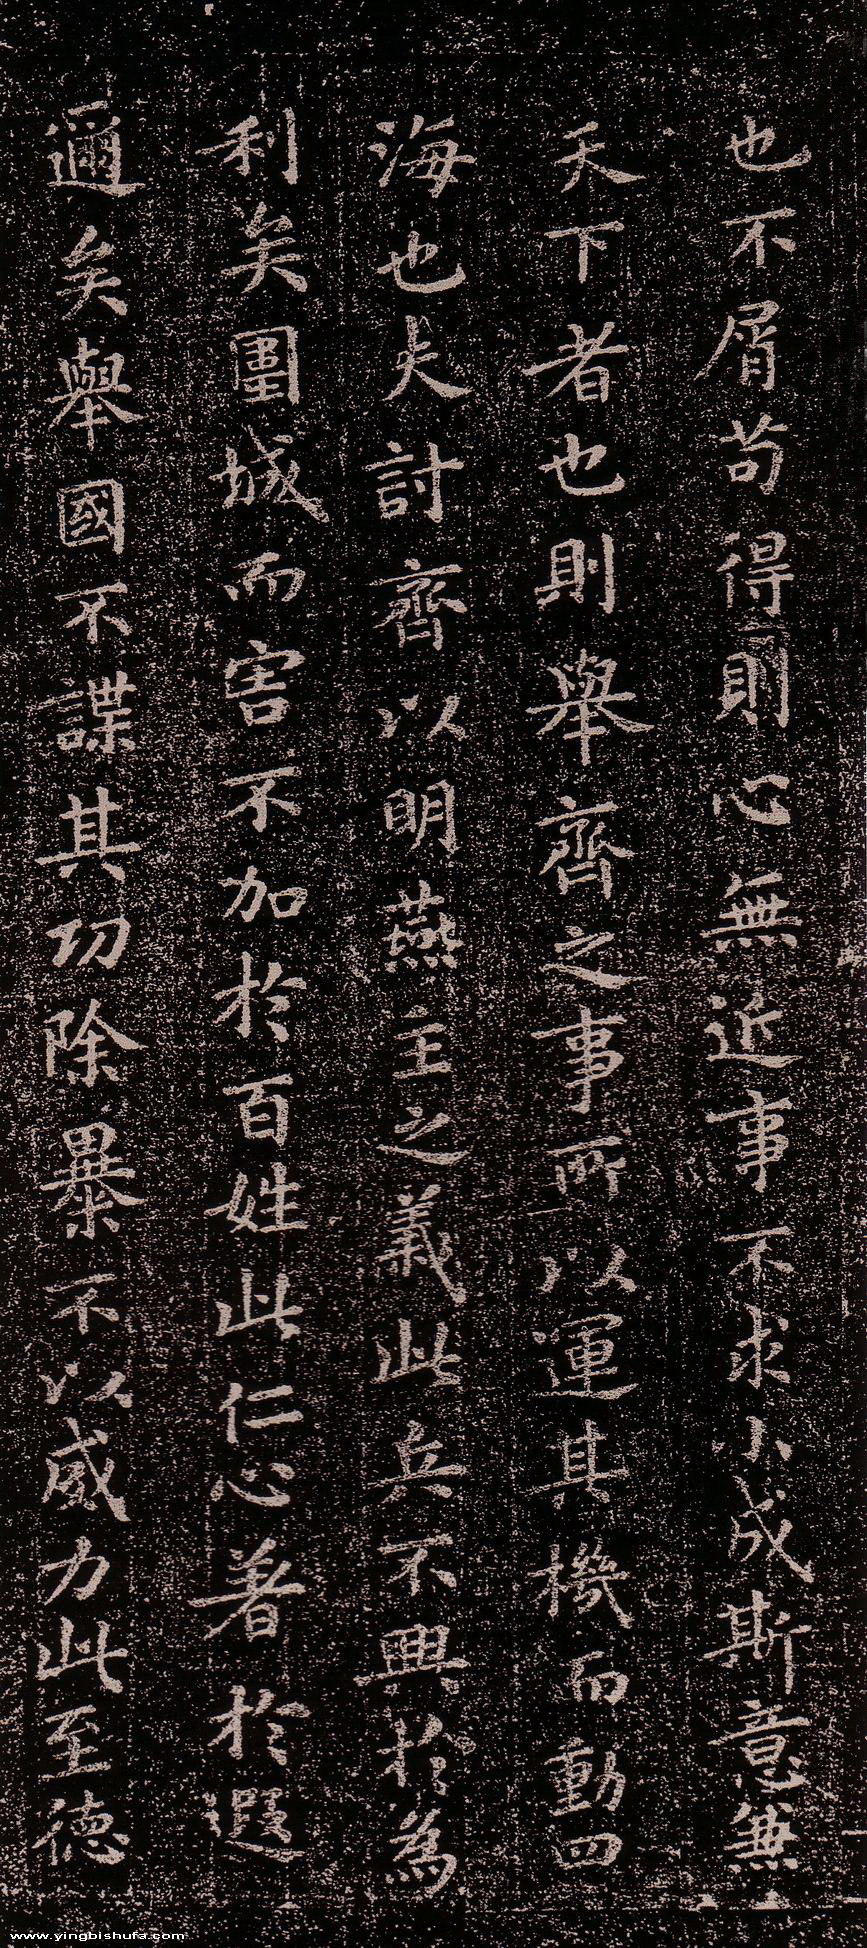 也不屑苟得則心無近事不求小成斯意兼
天下者也則舉齊之事所以運其機而動四
海也夫討齊以明燕主之義此兵不興於為
利矣圍城而害不加於百姓此仁心著於遐
邇矣舉國不謀其功除暴不以威力此至德
www.yingbishufa.com